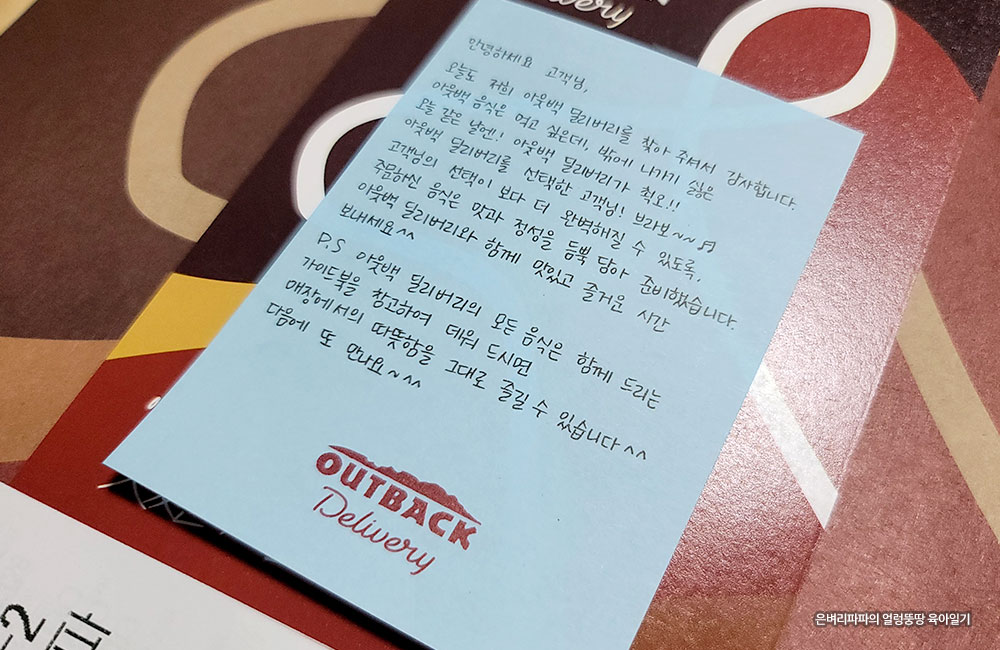 livery
안녕하세요 고객님,
오늘도 저희 아웃백 딜리버리를 찾아 주셔서 감사합니다.
아웃백 음식은 먹고 싶은데!, 밖에 나가기 싫은
오늘 같은 날엔! 아웃백 딜리버리가 최고!!
아웃백 딜리버리를 선택한 고객님! 브라보~~♬
고객님의 선택이 보다 더 완벽해질 수 있도록,
주문하신 음식은 맛과 정성을 듬뿍 담아 준비했습니다.
아웃백 딜리버리와 함께 맛있고 즐거운 시간
보내세요^^
P.S 아웃백 딜리버리의 모든 음식은 함께 드리는
가이드북을 참고하여 데워 드시면
매장에서의 따뜻함을 그대로 즐길 수 있습니다^^
다음에 또 만나요~^^
OUTBACK
Delivery
-2
은벼리파파의 얼렁뚱땅 육아일기